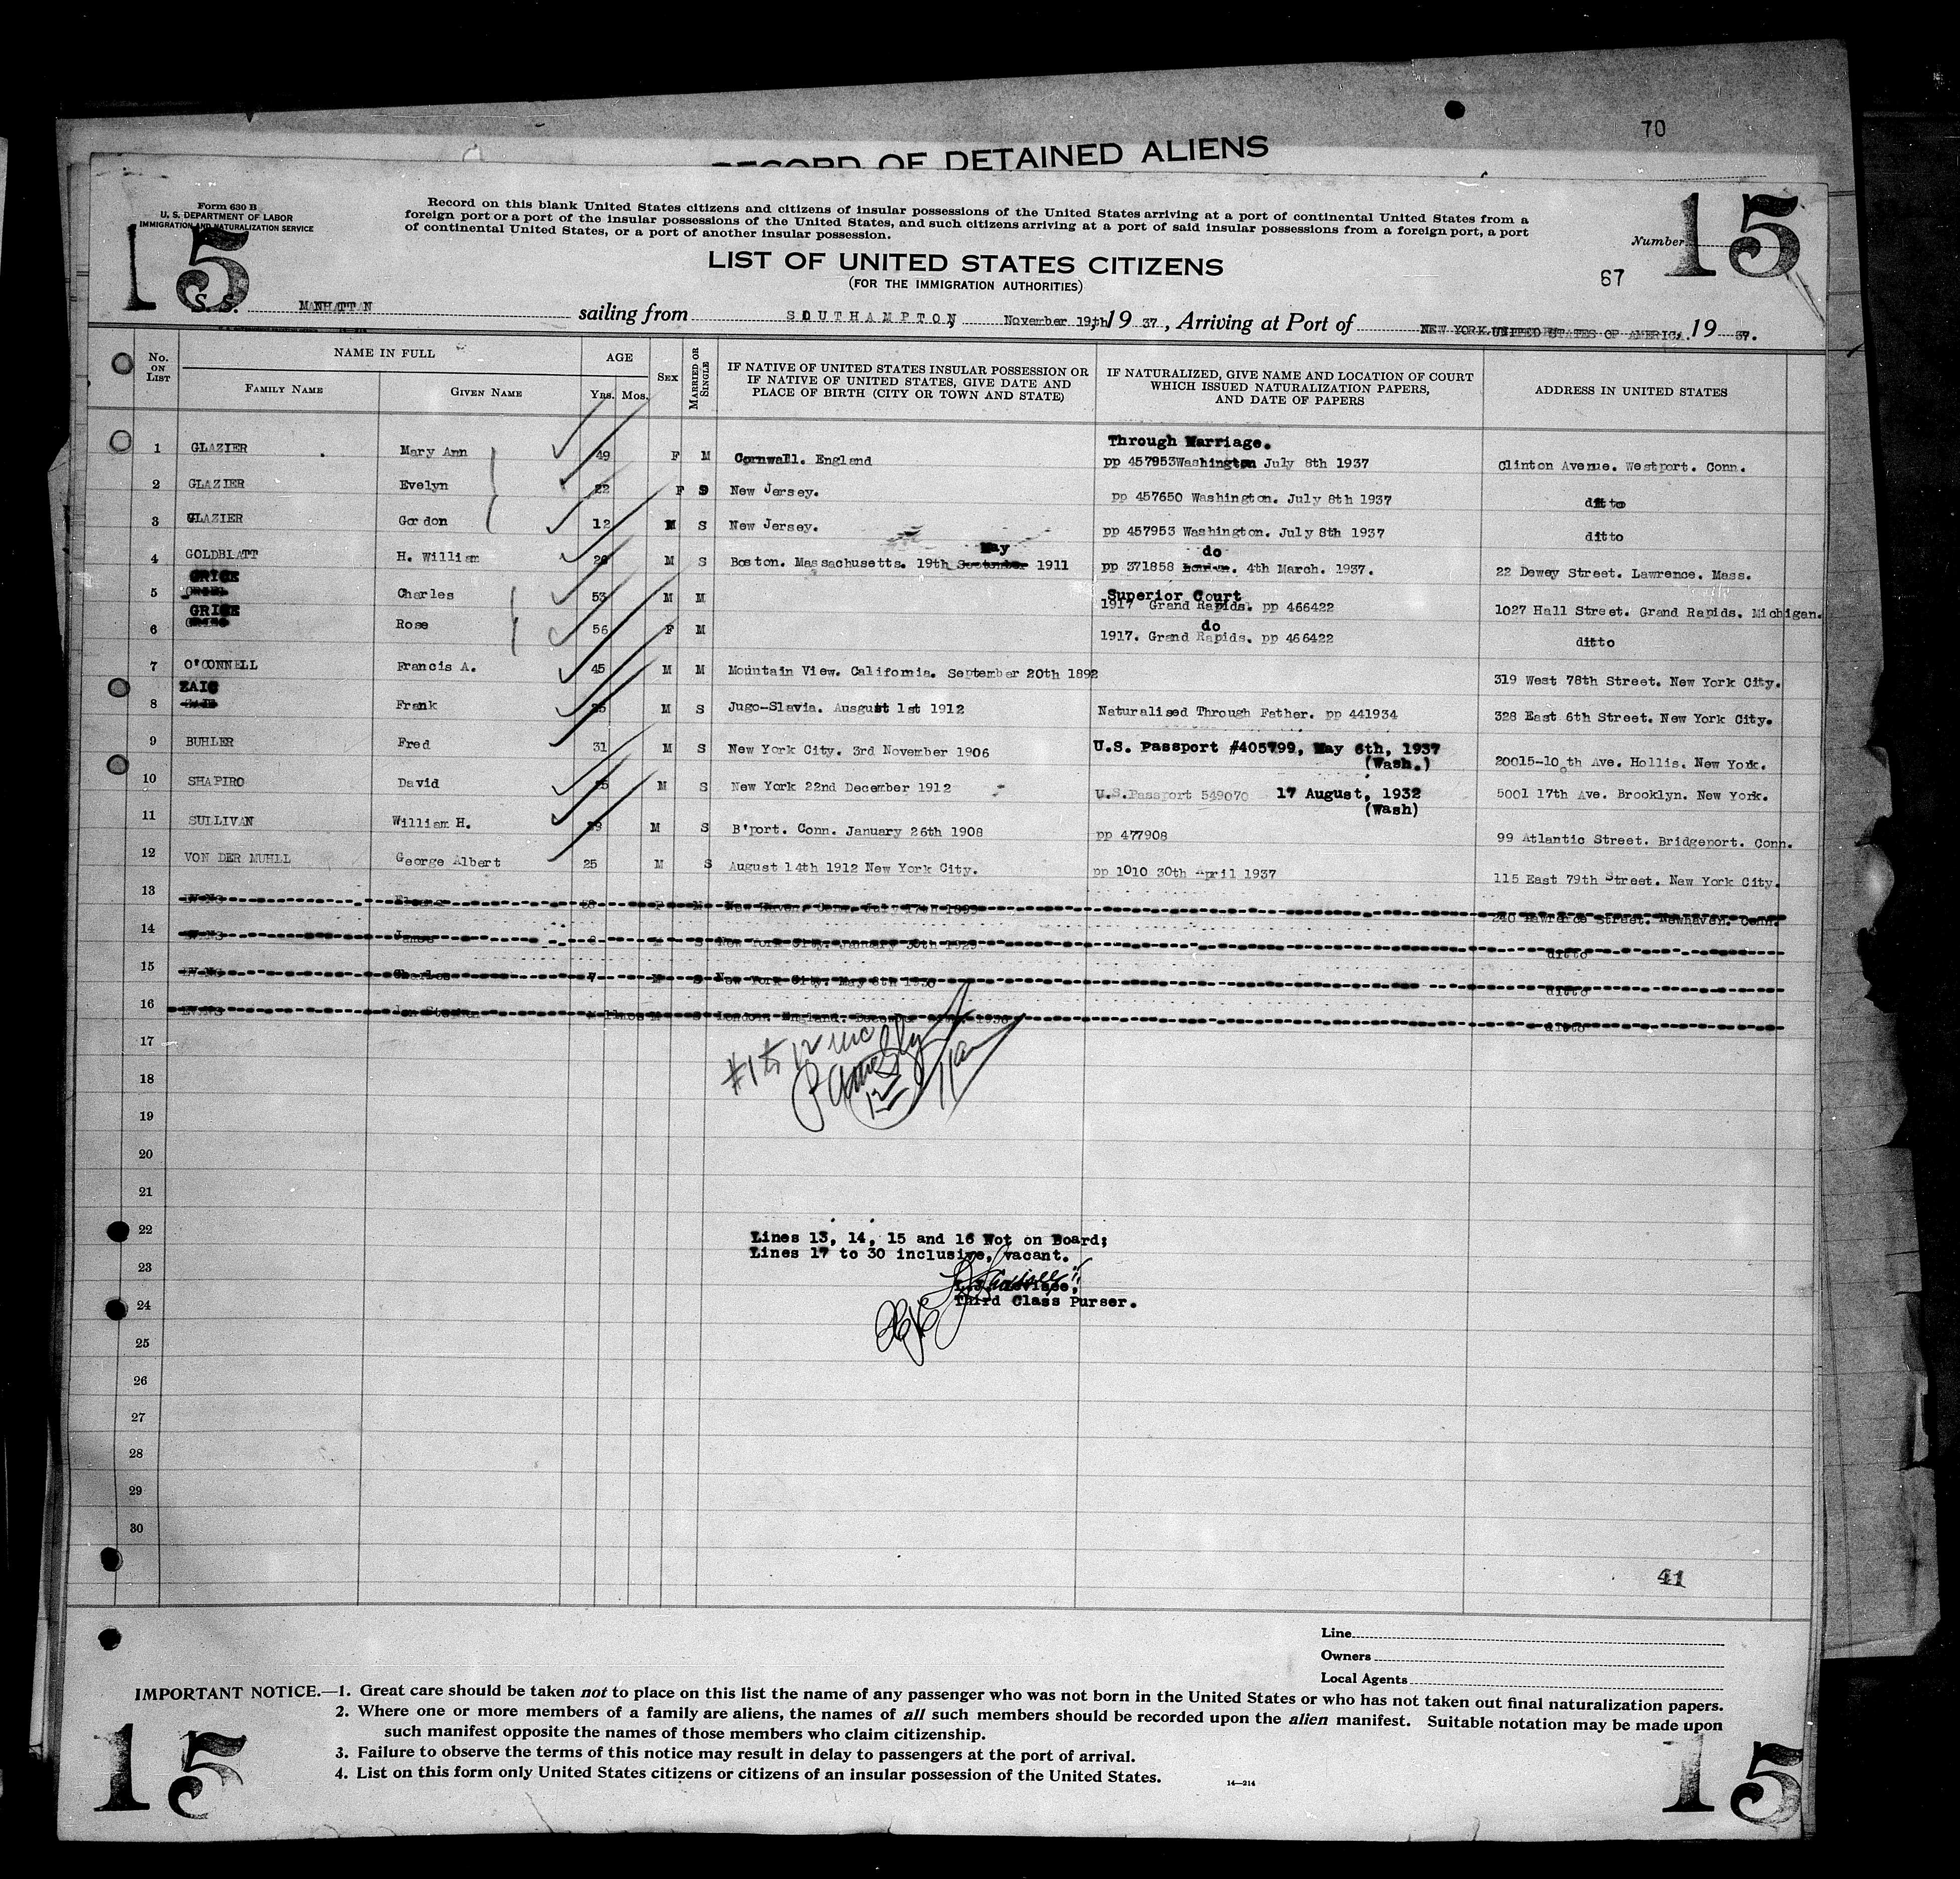 70
RECORD OF DETAINED ALIENS
15
15
Form 630 B
U. S. DEPARTMENT OF LABOR
IMMIGRATION AND NATURALIZATION SERVICE
Record on this blank United States citizens and citizens of insular possessions of the United States arriving at a port of continental United States from a
foreign port or a port of the insular possessions of the United States, and such citizens arriving at a port of said insular possessions from a foreign port, a port
of continental United States, or a port of another insular possession.
Number
LIST OF UNITED STATES CITIZENS
(FOR THE IMMIGRATION AUTHORITIES)
67
S.S. MANHATTAN sailing from SOUTHAMPTON, November 19th, 19 37, Arriving at Port of NEW YORK.UNITED STATES OF AMERICA. 19 37.
No. ON LIST NAME IN FULL AGE SEX MARRIED OR SINGLE IF NATIVE OF UNITED STATES INSULAR POSSESSION OR IF NATIVE OF UNITED STATES, GIVE DATE AND PLACE OF BIRTH (CITY OR TOWN AND STATE) IF NATURALIZED, GIVE NAME AND LOCATION OF COURT WHICH ISSUED NATURALIZATION PAPERS, AND DATE OF PAPERS ADDRESS IN UNITED STATES
FAMILY NAME GIVEN NAME YRS. MOS.
Through Marriage.
1 GLAZIER Mary Ann 49 F M Cornwall. England pp 457953 Washington July 8th 1937 Clinton Avenue. Westport. Conn.
2 GLAZIER Evelyn 22 F S New Jersey. pp 457650 Washington. July 8th 1937 ditto
3 GLAZIER Gordon 12 M S New Jersey. pp 457953 Washington. July 8th 1937 ditto
May do
4 GOLDBLATT H. William 26 M S Boston. Massachusetts. 19th September 1911 pp 371858 London. 4th March. 1937. 22 Dewey Street. Lawrence. Mass.
GRICE Superior Court
5 Charles 53 M M 1917 Grand Rapids. pp 466422 1027 Hall Street. Grand Rapids. Michigan.
GRICE do
6 Rose 56 F M 1917. Grand Rapids. pp 466422 ditto
7 O'CONNELL Francis A. 45 M M Mountain View. California. September 20th 1892 319 West 78th Street. New York City.
ZAIC
8 Frank 25 M S Jugo-Slavia. Ausgust 1st 1912 Naturalised Through Father. pp 441934 328 East 6th Street. New York City.
9 BUHLER Fred 31 M S New York City. 3rd November 1906 U.S. Passport #405799, May 6th, 1937 (Wash.) 20015-10 th Ave. Hollis. New York.
10 SHAPIRO David 25 M S New York 22nd December 1912 U.S.Passport 549070 17 August, 1932 (Wash) 5001 17th Ave. Brooklyn. New York.
11 SULLIVAN William H. 29 M S B'port. Conn. January 26th 1908 pp 477908 99 Atlantic Street. Bridgeport. Conn.
12 VON DER MUHLL George Albert 25 M S August 14th 1912 New York City. pp 1010 30th April 1937 115 East 79th Street. New York City.
13 F M New Haven. Conn. July 17th Lawrence Street. Newhaven. Conn.
14 James M S New York City. January 30th 1929 ditto
15 Charles 7 M S New York City. May 8th 1930 ditto
16 M S London. England. 1936 ditto
17
#1 to 12 inc
18
12
19
20
21
22
Lines 13, 14, 15 and 16 Not on Board;
Lines 17 to 30 inclusive, vacant.
23
Third Class Purser.
24
25
26
27
28
29
30
41
Line
Owners
Local Agents
IMPORTANT NOTICE.—1. Great care should be taken not to place on this list the name of any passenger who was not born in the United States or who has not taken out final naturalization papers.
2. Where one or more members of a family are aliens, the names of all such members should be recorded upon the alien manifest. Suitable notation may be made upon
such manifest opposite the names of those members who claim citizenship.
3. Failure to observe the terms of this notice may result in delay to passengers at the port of arrival.
4. List on this form only United States citizens or citizens of an insular possession of the United States.
14—214
15
15